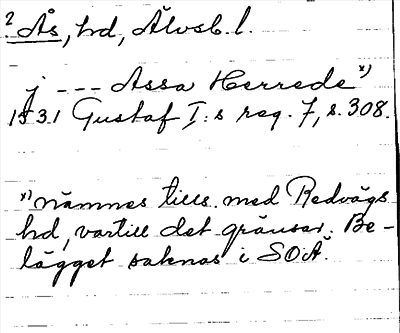 2. Ås, hd, Älvsb. l.
j --- Assa Herrede x)
1531 Gustaf I:s reg. 7, s. 308.
x) nämnes tills. med Redvägs
hd, vartill det gränsar. Be-
lägget saknas i SOÄ.